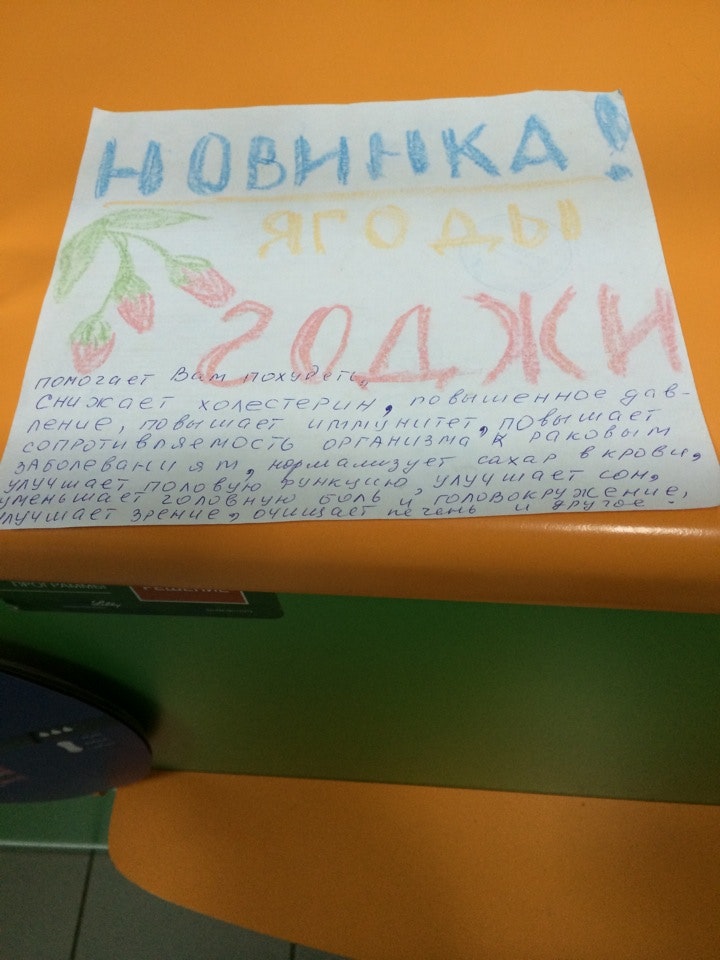 НОВИНКА!
ЯГОДЫ
ГОДЖИ
помогает Вам похудеть,
снижает холестерин, повышенное дав-
ление, повышает иммунитет, повышает
сопротивляемость организма к раковым
заболеваниям, нормализует сахар в крови,
улучшает половую функцию, улучшает сон,
уменьшает головную боль и головокружение,
улучшает зрение, очищает печень и другое.
ПРОГРАММЫ
РЕШЕНИЕ